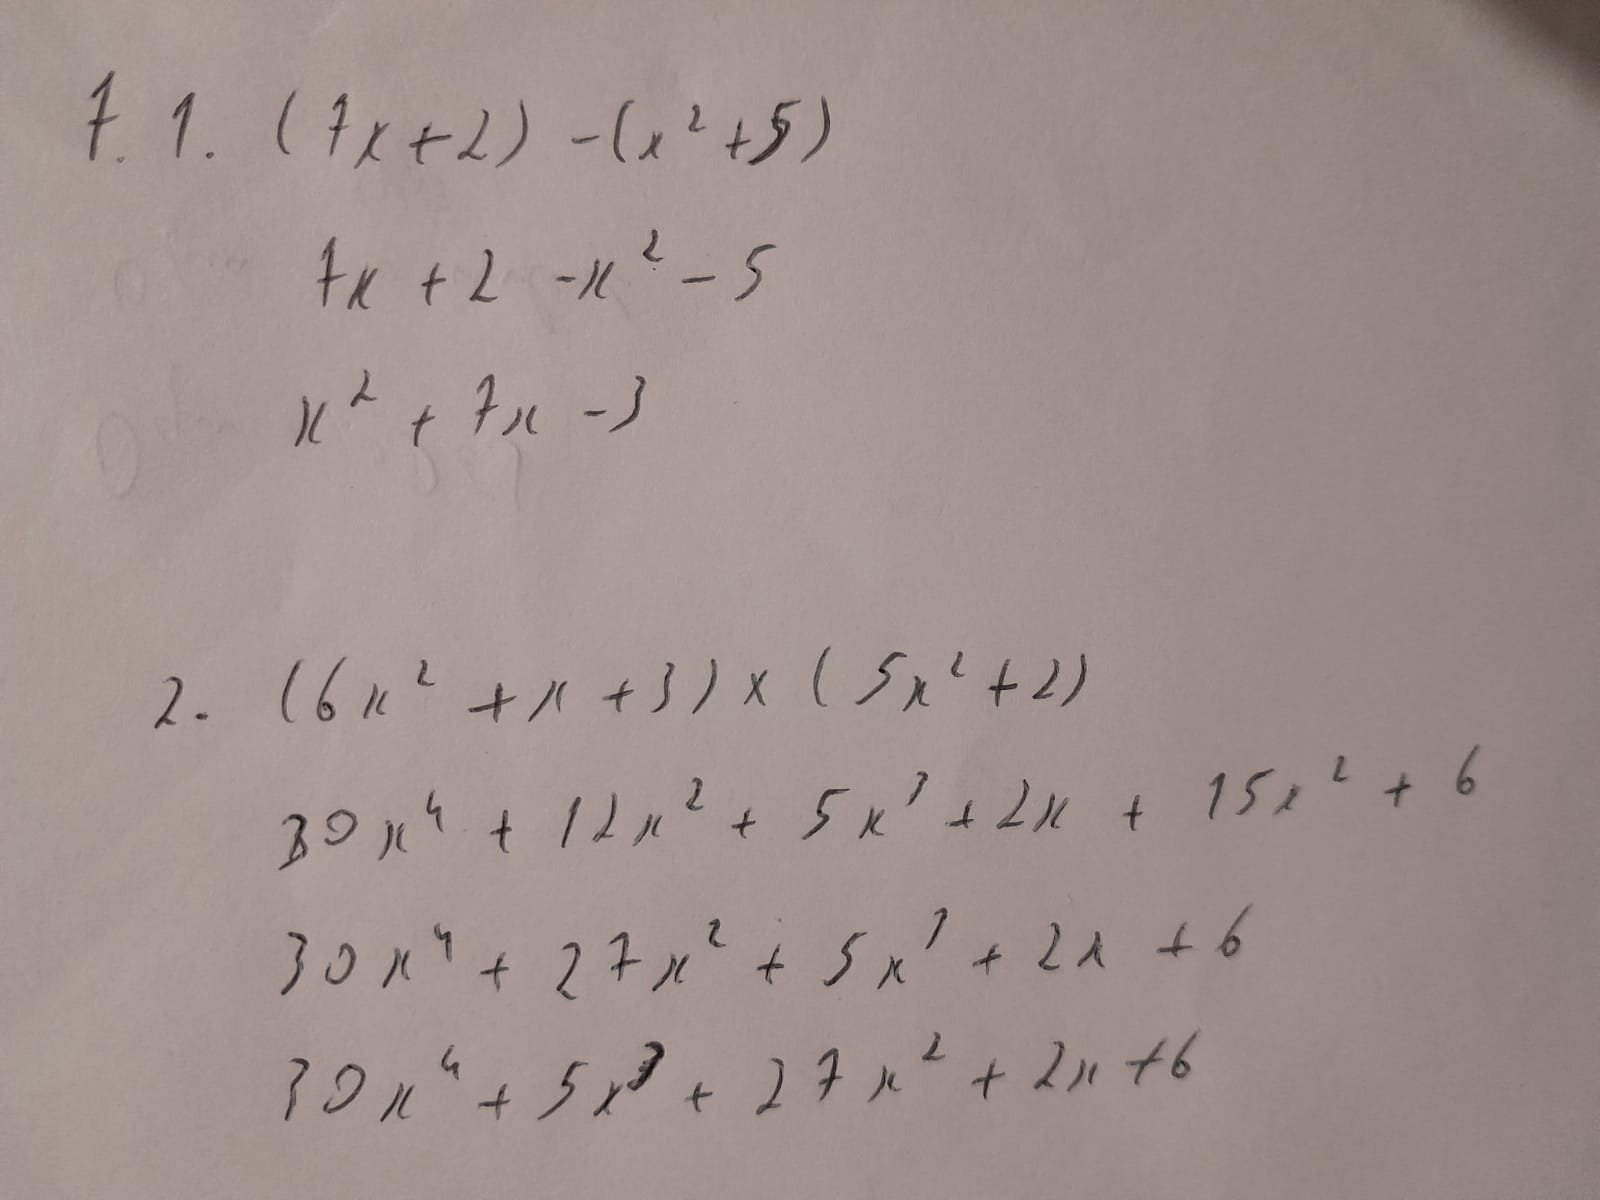 7. 1. (7x+2) -(x²+5)
7x + 2 -x² - 5
x² + 7x -3
2. (6x² + x +3) x (5x² + 2)
30x⁴ + 12x² + 5x³ + 2x + 15x² + 6
30x⁴ + 27x² + 5x³ + 2x + 6
30x⁴ + 5x³ + 27x² + 2x +6